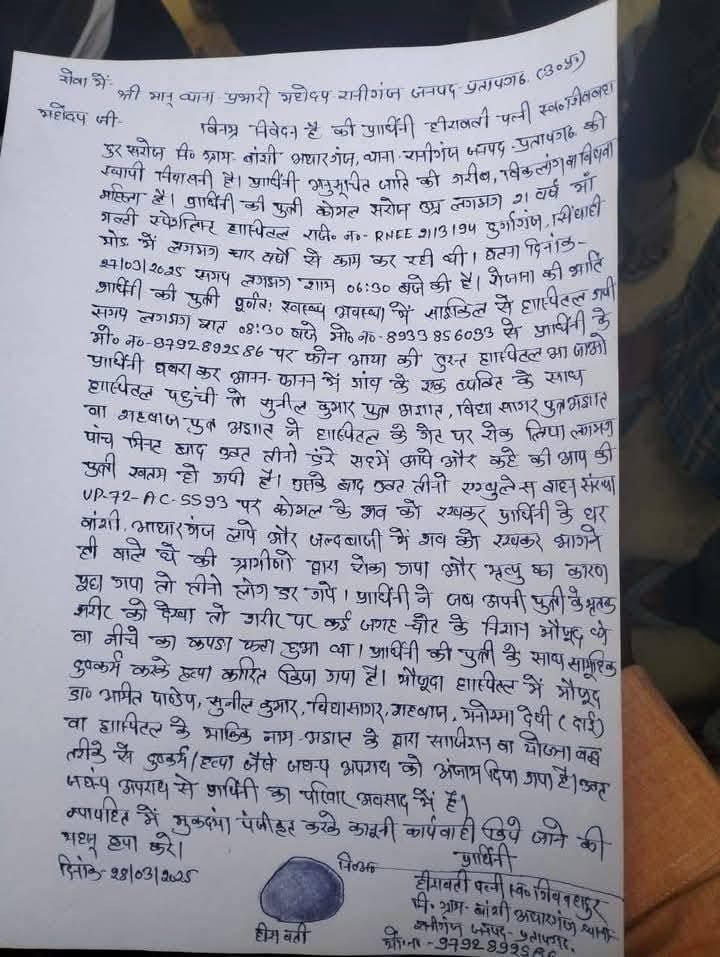 सेवा में-
श्री मान् थाना-प्रभारी महोदय रानीगंज जनपद-प्रतापगढ. (उ०प्र)
महोदय जी-
विनम्र निवेदन है की प्रार्थिनी हीरावती पत्नी स्व० शिवबहा
दुर सरोज नि० ग्राम-बांशी अधारगंज, थाना-रानीगंज जनपद-प्रतापगढ की
स्थायी निवासनी है। प्रार्थिनी अनुसूचित जाति की गरीब, विकलांग वा विधवा
महिला है। प्रार्थिनी की पुत्री कोमल सरोज उम्र लगभग 21 वर्ष माँ
स्पेशलिस्ट हास्पिटल राजि० न०- RNEE 2113194 दुर्गागंज, सिंघाही
मोड में लगभग चार वर्षो से काम कर रही थी। घटना दिनांक-
27/03/2025 समय लगभग शाम 06:30 बजे की है। रोजाना की भाति
प्रार्थिनी की पुत्री पूर्णतः स्वास्थ्य अवस्था में साइकिल से हास्पिटल गयी
समय लगभग रात 08:30 बजे मो० न०-8933856093 से प्रार्थिनी के
मो० न०-9792892586 पर फोन आया की तुरन्त हास्पिटल आ जाओ
प्रार्थिनी घबरा कर आनन-फानन में गांव के एक व्यक्ति के साथ
हास्पिटल पहुंची तो सुनील कुमार पुत्र अज्ञात, विद्या सागर पुत्र अज्ञात
वा शहबाज पुत्र अज्ञात ने हास्पिटल के गेट पर रोक लिया लगभग
पांच मिनट बाद उक्त तीनो डरे सहमें आये और कहे की आप की
पुत्री खतम हो गयी है। इसके बाद उक्त तीनो एम्बुलेन्स वाहन संख्या
UP-72-AC-5593 पर कोमल के शव को रखकर प्रार्थिनी के घर
बांशी, आधारगंज लाये और जल्दबाजी में शव को रखकर भागने
ही वाले थे की ग्रामीणो द्वारा रोका गया और मृत्यु का कारण
पूछा गया तो तीनो लोग डर गये। प्रार्थिनी ने जब अपनी पुत्री के मृतक
शरीर को देखा तो शरीर पर कई जगह चोट के निशान मौजूद थे
वा नीचे का कपडा फटा हुआ था। प्रार्थिनी की पुत्री के साथ सामूहिक
दुष्कर्म करके हत्या कारित किया गया है। मौजूदा हास्पिटल में मौजूद
डा० अमित पाण्डेय, सुनील कुमार, विद्यासागर, शहबाज, मनोरमा देवी (दाई)
वा हास्पिटल के मालिक नाम-अज्ञात के द्वारा साजिशन वा योजना बद्ध
तरीके से दुष्कर्म/हत्या जैसे जघन्य अपराध को अंजाम दिया गया है। उक्त
जघन्य अपराध से प्रार्थिनी का परिवार अवसाद में है।
न्यायहित में मुकदमा पंजीकृत करके कानूनी कार्यवाही किये जाने की
कृपा करे।
दिनांक-28/03/2025
नि०अं०
प्रार्थिनी
हीरावती पत्नी स्व० शिवबहादुर
नि०- ग्राम-बांशी अधारगंज थाना-
रानीगंज जनपद-प्रतापगढ.
मो०न०-9792892586
हीरावती